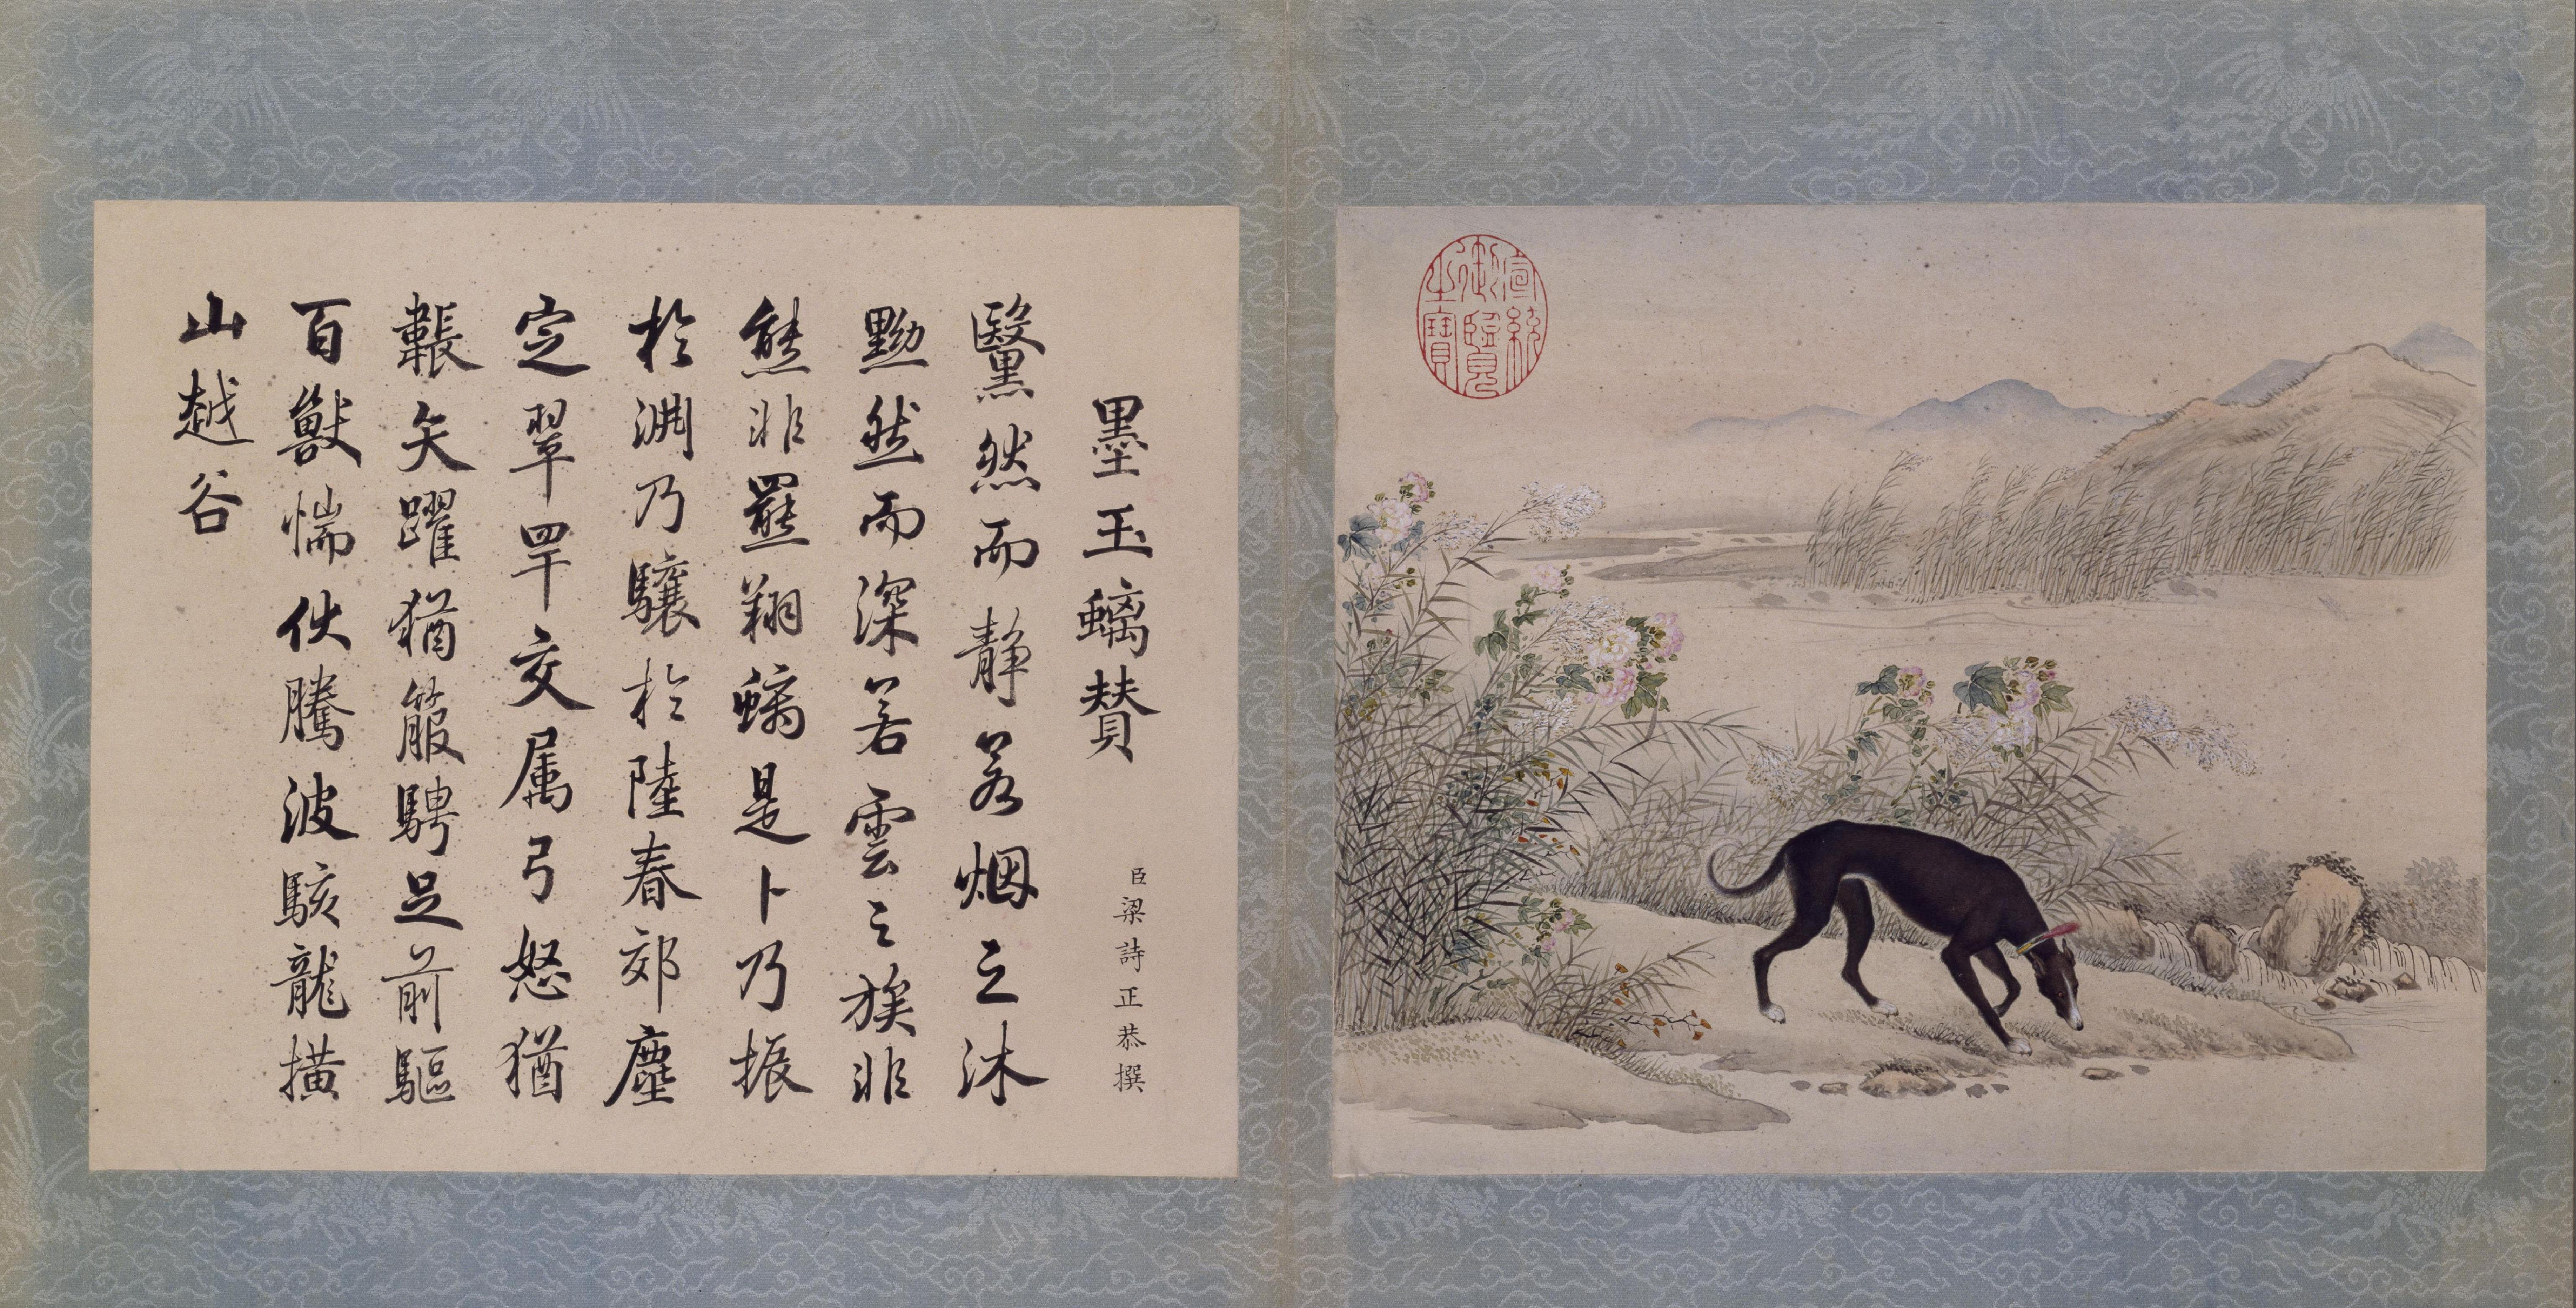 墨玉螭赞
臣梁詩正恭撰
黳然而靜若烟之沐
黝然而深若雲之族非
熊非羆翔螭是卜乃振
於淵乃驤於陸春郊塵
定翠罕交属弓怒猶
韔矢躍猶箙騁足前驅
百獸惴伏騰波駭龍橫
山越谷
宣統御覽之寶